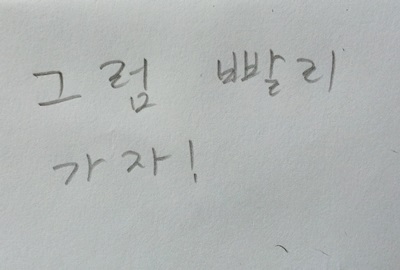 그럼 빨리
가자!